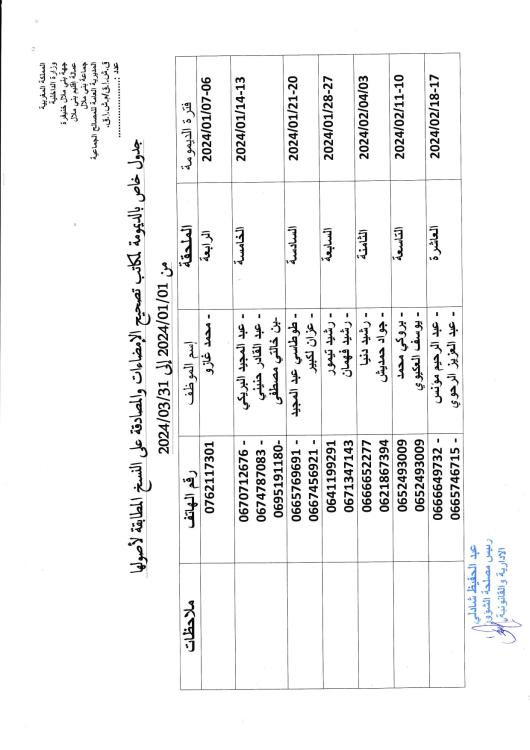 المملكة المغربية
وزارة الداخلية
جهة بني ملال خنيفرة
عمالة اقليم بني ملال
جماعة بني ملال
المديرية العامة للمصالح الجماعية
عدد : ................
جدول خاص بالديمومة لمكاتب تصحيح الإمضاءات والمصادقة على النسخ المطابقة لأصولها
من 2024/01/01 إلى 2024/03/31
فترة الديمومة | الملحقة | إسم الموظف | رقم الهاتف | ملاحظات
2024/01/07-06 | الرابعة | - محمد غازو | 0762117301
2024/01/14-13 | الخامسة | - عبد المجيد البريكي | 0670712676 -
- عبد القادر حنيني | 0674787083 -
-بن خالتي مصطفى | 0695191180-
2024/01/21-20 | السادسة | - طوطاسي عبد المجيد | 0665769691 -
- عزان لكبير | 0667456921 -
2024/01/28-27 | السابعة | - رشيد تيمور | 0641199291
- رشيد فهمان | 0671347143
2024/02/04/03 | الثامنة | - رشيد دنيا | 0666652277
- جواد حمديش | 0621867394
2024/02/11-10 | التاسعة | - بروكي محمد | 0652493009
- يوسف العكيوي | 0652493009
2024/02/18-17 | العاشرة | - عبد الرحيم مونس | 0666649732 -
- عبد العزيز الرحوي | 0665746715 -
عبد الحفيظ شادلي
رئيس مصلحة الشؤون
الادارية والقانونية